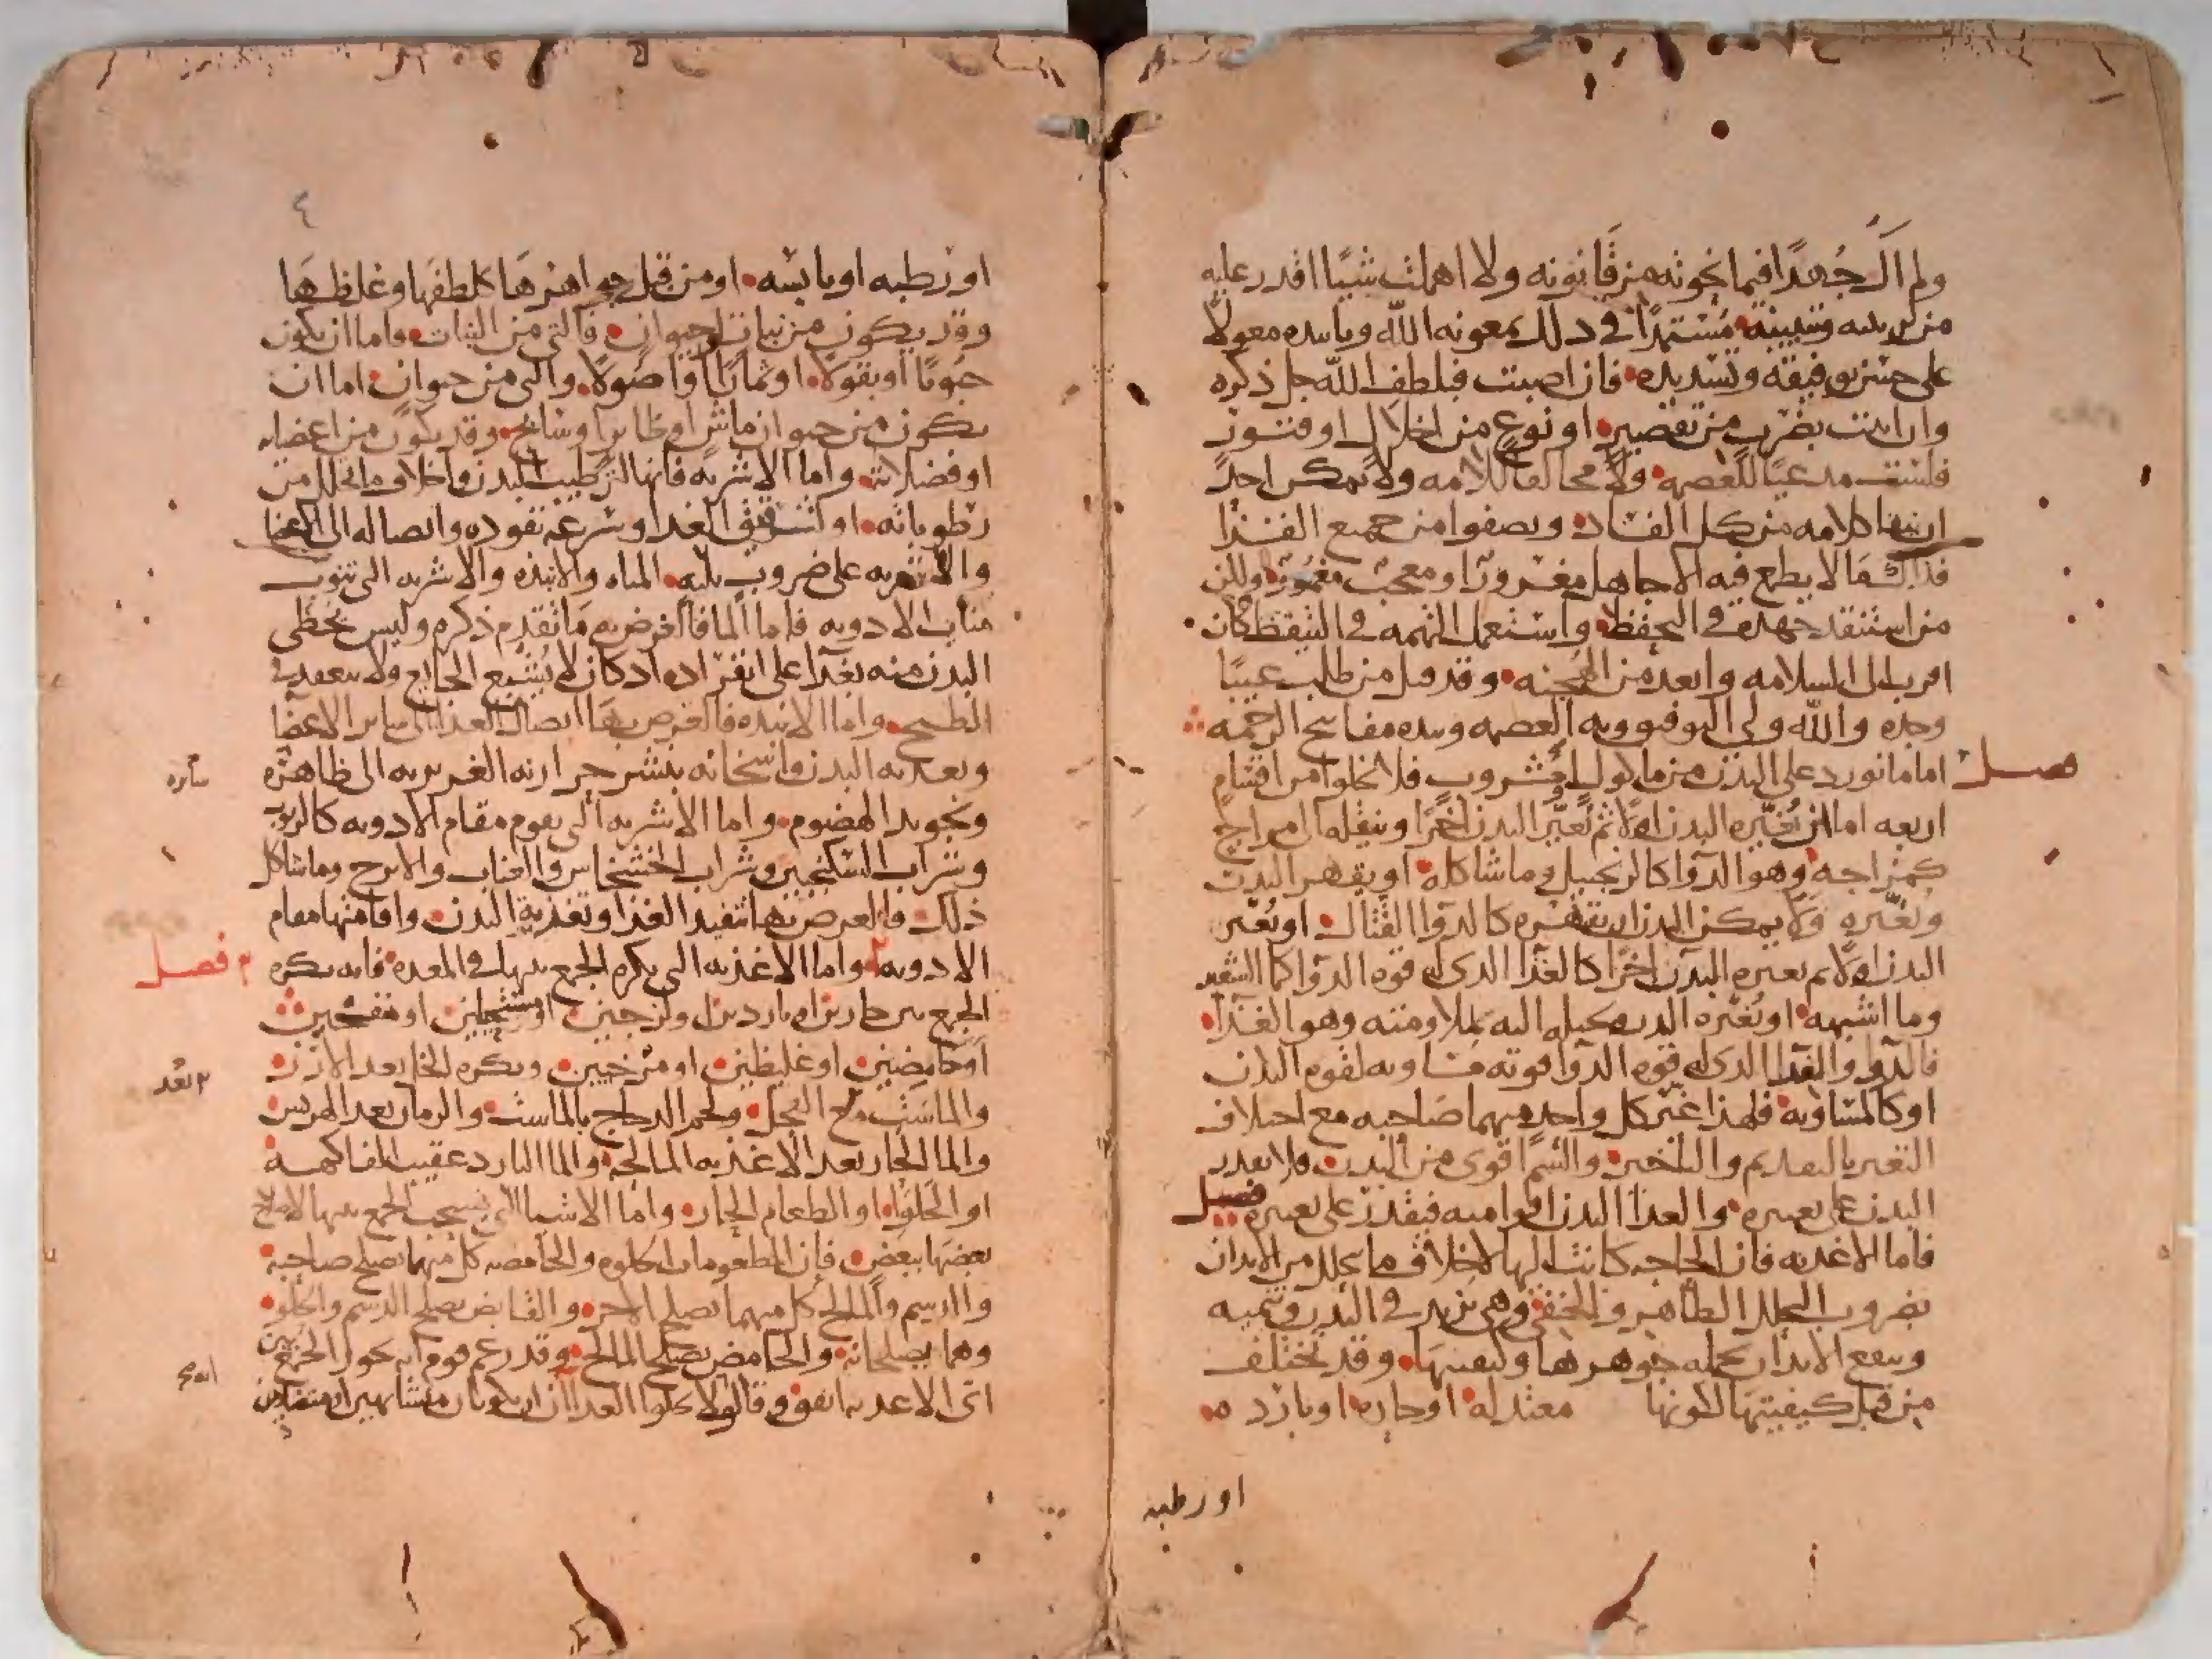 ولم آل جُهدًا فيما نحوته من قانونه ولا اهملت شيئًا اقدر عليه
من تبيينه مُستمدًا في ذلك بمعونه الله وتاييده معولًا
على حسن توفيقه وتسديده فان اصبت فبلطف الله جل ذكره
وان اتيت بضرب من تقصير او نوع من اخلال او فتور
فلست مدعيًا للعصمه ولا مخالفا للامه ولا يمكن احدً
ان كلامه من كل الفساد ويصفوا من جميع القذا
فذاك مما لا يطمع فيه الا جاهل مغرورًا ومعجب ولكن
من استنفد جهده في التحفظ واستعمل التهمه في التيقظ كان
اقرب الى السلامه وابعد من الهجنه وقد قيل من طلب عيبًا
وجده والله ولي التوفيق وبه العصمه وبيده مفاتيح الرحمه
فصل اما ما نورد على البدن من ماكول او مشروب فلا يخلوا من اقسام
اربعه اما ان يُغيّره البدن اولًا ثم يُغيّر البدن اخرًا وينقله الى مزاج
كمزاجه وهو الدوآ كالزنجبيل وما شاكله او يقهر البدن
ويُغيّره ولا يمكن البدن ان يقهره كالدوآ القتال او يُغير
البدن اولًا ثم يغيره البدن اخرًا كالغذآ الذي له قوه الدوآ
وما اشبهه او يُغيّره البدن ويحيله اليه بملاومته وهو الغذآ
فالدوآ والغذآ الذي له قوه الدوآ قوته مساويه لقوه البدن
او كالمساويه فلهذا غيّر كل واحد منهما صاحبه مع اختلاف
التغير بالتقديم والتاخير والسم اقوى من البدن فلا يقدر
البدن على تغييره والغذا البدن اقوا منه فيقدر على تغييره فصل
فاما الاغذيه فان الحاجه كانت اليها لاخلاف ما يتحلل من الابدان
بضروب التحلل الظاهر والخفي وهي تزيد في البدن وتنميه
وتنفع الابدان بجمله جوهرها وكيفيتها وقد تختلف
من قبل كيفيتها لكونها معتدله او حاره او بارده
او رطبه
٤
او رطبه او يابسه او من قبل جواهرها كلطفها وغلظها
وقد يكون من نبات وحيوان فالتي من النبات فاما ان يكون
حبوبًا او بقولًا او ثمارًا او اصولًا والتي من حيوان اما ان
يكون من حيوان ماشي او طاير او سابح وقد يكون من اعضايه
او فضلاته واما الاشربه فانها لترطيب البدن واخلاف ما انحلل من
رطوباته او لترقيق الغذا وسرعه نفوذه وايصاله الى الاعضا
والاشربه على ضروب ثلثه المياه والانبذه والاشربه التي تنوب
مناب الادويه فاما الما فالغرض به ما تقدم ذكره وليس يحظى
البدن منه بغذا على انفراده اذ كان لا يُشبع الجايع ولا ينعقد في
الطبيخ واما الانبذه فالغرض بها ايصال الغذا الى ساير الاعضآ
وتغذيه البدن واسخانه بنشر حرارته الغريزيه الى ظاهره
سآره
وتجويد الهضوم واما الاشربه التي تقوم مقام الادويه كالربوب
وشراب السكنجبين وشراب الخشخاش والعناب والاترج وما شاكل
ذلك فالغرض بها تنفيذ الغذا وتغذية البدن واقامتها مقام
الادويه واما الاغذيه التي يكره الجمع بينها في المعده فانه يكره
فصل
الجمع بين حارين او باردين او لزجين او مستحيلين او منفخين
او قابضين او غليظين او مرخيين ويكره الخل بعد الارز
بعُد
والماست مع الفجل ولحم الدجاج بالماست والرمان بعد الهريس
والما الحار بعد الاغذيه المالحه والما البارد عقيب الفاكهه
او الحلوا او الطعام الحار واما الاشيا التي يستحب الجمع بينها لاصلاح
بعضها ببعض فان المطعومات الحلوه والحامضه كل منهما يصلح صاحبه
والدسم والمالح كل منهما يصلح الاخر والقابض يصلح الدسم والحلو
وهما يصلحانه والحامض يصلح المالح وقد زعم قوم انه يجوز الجمع بين
اي الاغذيه اتفق وقالوا لا يخلوا الغذاان ان يكونان متشابهين او متضادين